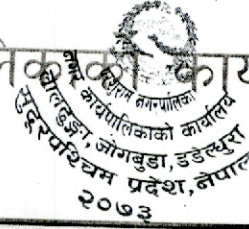 परशुराम नगरपालिका
नगर कार्यपालिकाको कार्यालय
जोगबुडा, डडेल्धुरा
सुदूरपश्चिम प्रदेश, नेपाल
२०७३